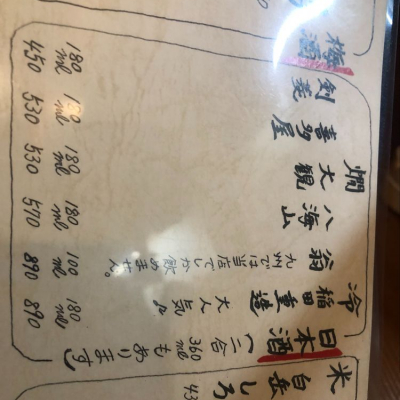 米 白岳しろ
日本酒（二合360mlもあります）
冷 稲田重造 大人気♪ 180ml 890
翁 九州では当店でしか飲めません。 100ml 890
八海山 180ml 570
燗 大観 180ml 530
喜多屋 180ml 530
剣菱 180ml 450
梅酒